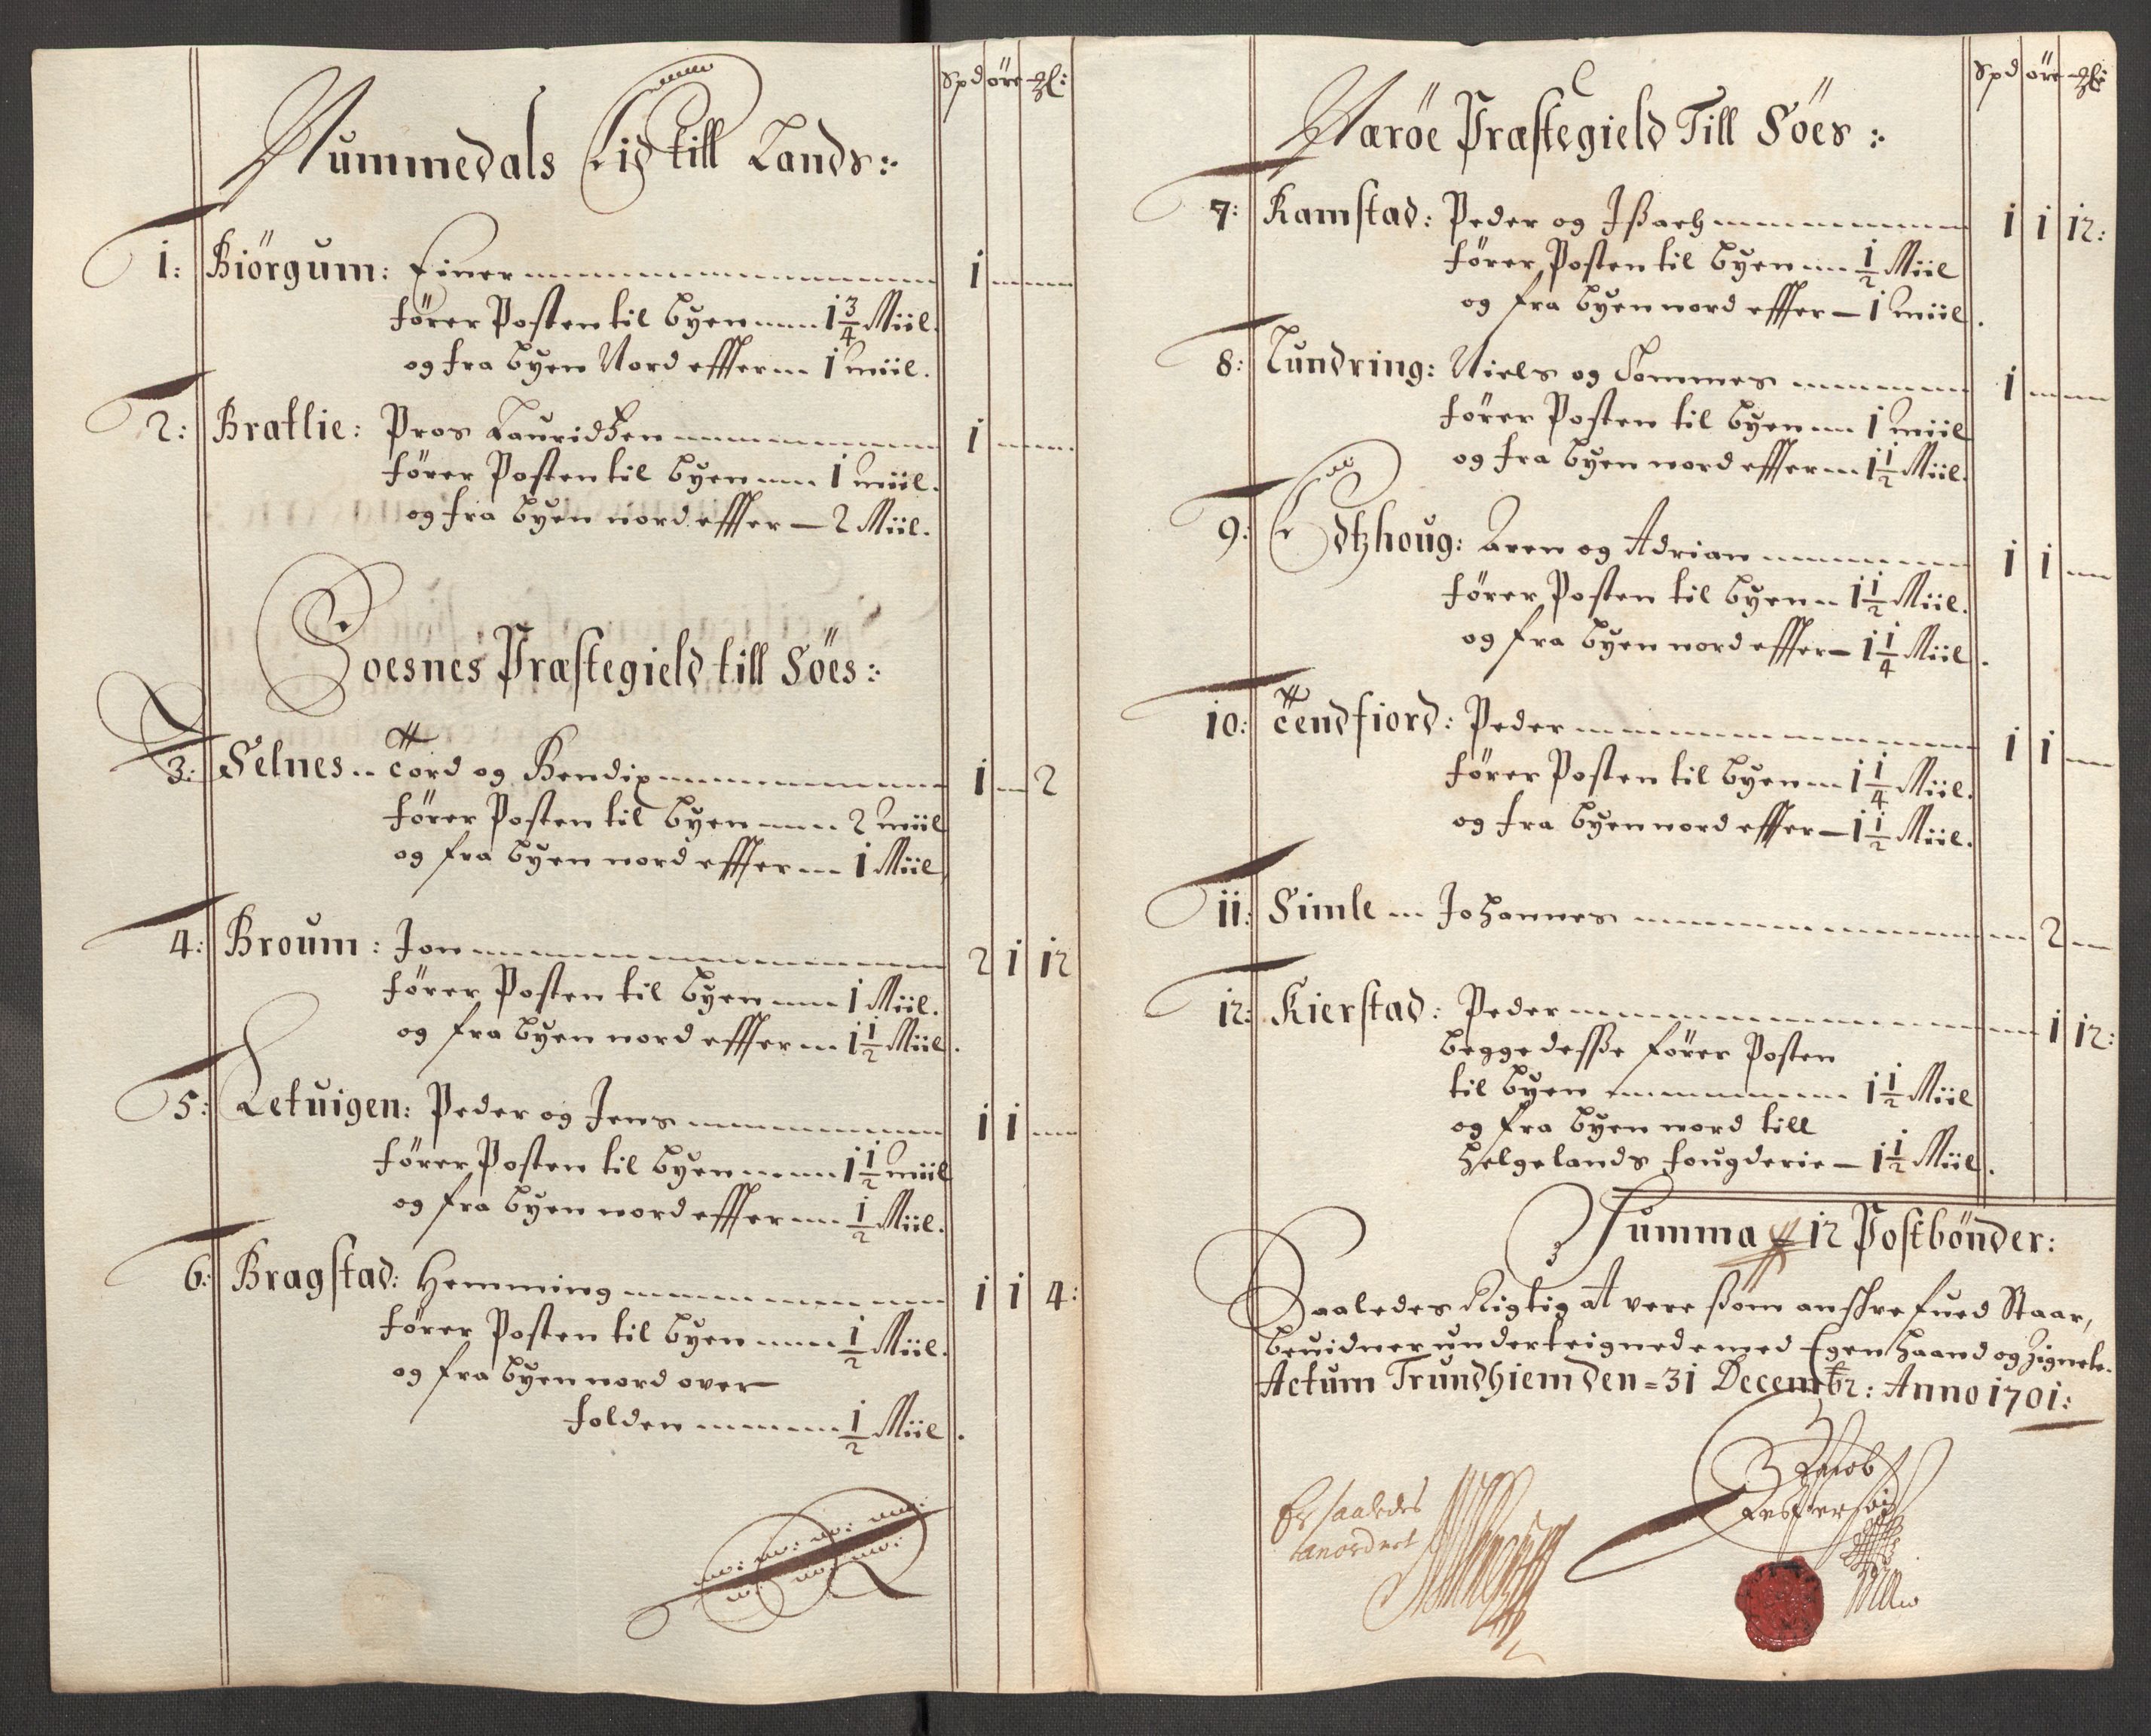 Spd öre
Nummedals Eid till Lands:
1: Biörgum: Einer 1
fører Posten til byen 1 3/4 Miil.
og fra byen Nord effter 1 miil.
2: Bratlie: Pros Lauridsen 1
fører Posten til byen 1 miil.
og fra byen nord effter — 2 Miil.
Foesnes Præstegield till Söes:
3: Selnes Tord og Bendix 1 2
fører Posten til byen 2 miil
og fra byen nord effter 1 Miil
4: Broum: Jon 2 1 12
fører Posten til byen 1 Miil.
og fra byen nord effter 1 1/2 Miil.
5: Letuigen: Peder og Jens 1 1
fører Posten til byen 1 1/2 miil
og fra byen nord effter 1/2 Miil.
6: Bragstad: Hemming 1 1 4:
fører Posten til byen 1/2 Miil.
og fra byen nord over
folden 1/2 Miil.
Spd öre
Næröe Præstegield Till Söes:
7: Ramstad: Peder og Issach 1 1 12:
fører Posten til byen 1/2 Miil
og fra byen nord effter — 1 miil.
8: Lundring: Niels og Tommes 1
fører Posten til byen 1 miil
og fra byen nord effter 1 1/2 Miil.
9: Edtzhoug: Aren og Adrian 1 1
fører Posten til byen 1 1/2 Miil.
og fra byen nord effter — 1 1/4 Miil.
10: Tendfiord: Peder 1 1
fører Posten til byen 1 1/4 Miil.
og fra byen nord effter — 1 1/2 Miil.
11: Simle Johannes 2
12: Kierstad: Peder 1 12:
begge desse fører Posten
til byen 1 1/2 Miil
og fra byen nord till
Helgelands fougderie — 1 1/2 Miil.
Summa 12 Postbönder:
Saaledes Rigtig At vere som anschrefued Staar,
beuidner underteignede med Egen haand og Zignete.
Actum Trundhiem den = 31 Decembr: Anno 1701:
Er saaledes
anordnet
Jacob